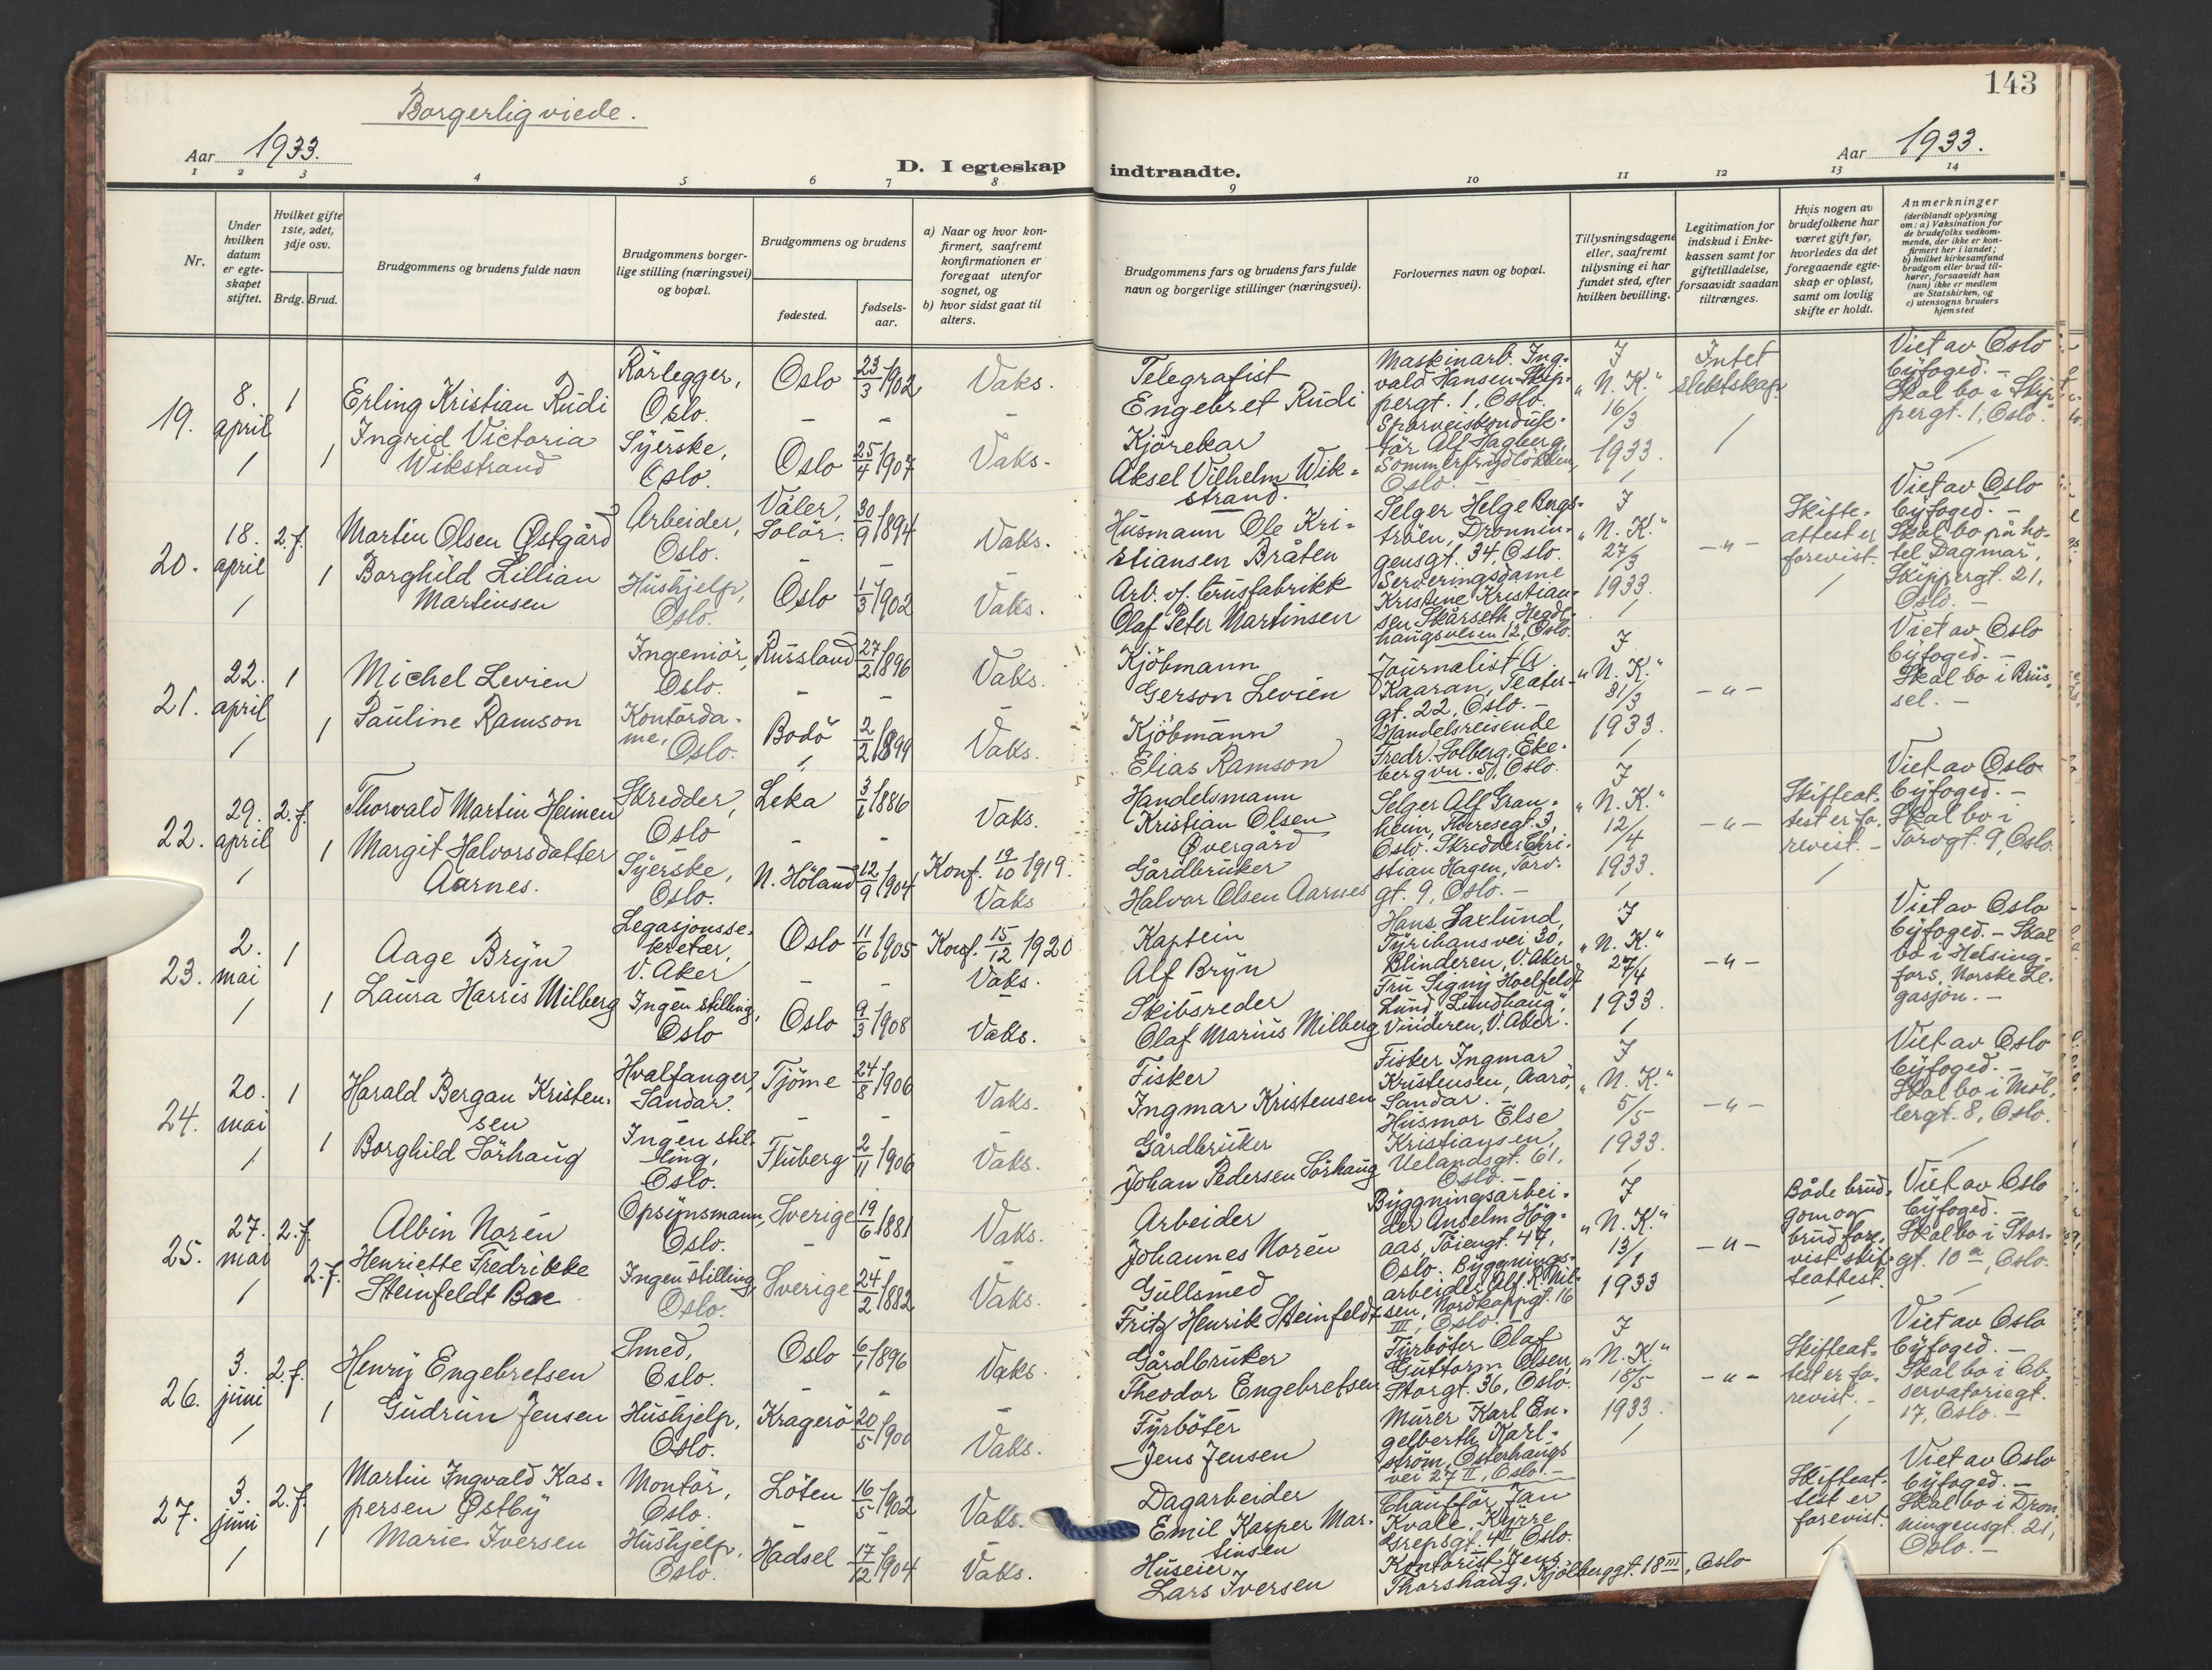 Borgerlig viede.
Aar 1933.
D. I egteskap
1 2 3 4 5 6 7 8
Nr.
Under hvilken datum er egteskapet stiftet.
Hvilket gifte 1ste, 2det, 3dje osv.
Brdg. Brud.
Brudgommens og brudens fulde navn
Brudgommens borgerlige stilling (næringsvei) og bopæl.
Brudgommens og brudens
fødested.
fødselsaar.
a) Naar og hvor konfirmert, saafremt konfirmationen er foregaat utenfor sognet, og
b) hvor sidst gaat til alters.
19. 8. april 1
Erling Kristian Rudi
Rörlegger, Oslo.
Oslo 23/3 1902 Vaks.
1
Ingrid Victoria Wikstrand
Syerske, Oslo.
Oslo 25/4 1907 Vaks.
20. 18. april 2.f.
Martin Olsen Østgård
Arbeider, Oslo.
Våler, Solör. 30/9 1894 Vaks.
1
Borghild Lillian Martinsen
Hushjelp, Oslo.
Oslo 1/3 1902 Vaks.
21. 22. april 1
Michel Levien
Ingeniör, Oslo.
Russland 27/2 1896 Vaks.
1
Pauline Ramson
Kontorda-
me, Oslo.
Bodö 2/2 1899 Vaks.
22. 29. april 2.f.
Thorvald Martin Heimen
Skredder, Oslo
Leka 3/1 1886 Vaks.
1
Margit Halvorsdatter Aarnes.
Syerske, Oslo.
N. Höland 12/9 1904 Konf. 19/10 1919. Vaks
23. 2. mai 1
Aage Bryn
Legasjonsse-
kretær, V. Aker
Oslo 11/6 1905 Konf. 15/12 1920 Vaks.
1
Laura Harris Milberg
Ingen stilling, Oslo
Oslo 9/3 1908 Vaks.
24. 20. mai 1
Harald Bergan Kristen-
sen
Hvalfanger, Sandar.
Tjöme 24/8 1906 Vaks.
1
Borghild Sörhaug
Ingen stil-
ling, Oslo.
Fluberg 2/11 1906 Vaks.
25. 27. mai 2.f.
Albin Norén
Opsynsmann, Oslo.
Sverige 19/6 1881 Vaks.
2.f.
Henriette Fredrikke Steinfeldt Boe
Ingen stilling, Oslo.
Sverige 24/2 1882 Vaks.
26. 3. juni 2.f.
Henry Engebretsen
Smed, Oslo.
Oslo 6/1 1896 Vaks.
1
Gudrun Jensen
Hushjelp, Oslo.
Kragerö 20/5 1900 Vaks.
27. 3. juni 2.f.
Martin Ingvald Kas-
persen Østby
Montör, Oslo.
Löten 16/5 1902 Vaks.
1
Marie Iversen
Hushjelp, Oslo.
Hadsel 17/12 1904 Vaks.
143
Aar 1933.
indtraadte.
9 10 11 12 13 14
Brudgommens fars og brudens fars fulde navn og borgerlige stillinger (næringsvei).
Forlovernes navn og bopæl.
Tillysningsdagene eller, saafremt tillysning ei har fundet sted, efter hvilken bevilling.
Legitimation for indskud i Enkekassen samt for giftetilladelse, forsaavidt saadan tiltrænges.
Hvis nogen av brudefolkene har været gift før, hvorledes da det foregaaende egteskap er opløst, samt om lovlig skifte er holdt.
Anmerkninger (deriblandt oplysning om: a) Vaksination for de brudefolks vedkommende, der ikke er konfirmert her i landet; b) hvilket kirkesamfund brudgom eller brud tilhører, forsaavidt han (hun) ikke er medlem av Statskirken, og c) utensogns bruders hjemsted
Telegrafist
Engebret Rudi
Kjörekar
Aksel Vilhelm Wik-
strand.
Maskinarb. Ing-
vald Hansen Skip-
pergt. 1, Oslo.
Sporveiskonduk-
tör Alf Hagberg,
Sommerfrydlökken,
Oslo.
I "N. K." 16/3 1933.
Intet slektskap.
Viet av Oslo
byfoged. -
Skal bo i Skip-
pergt. 1, Oslo.
Husmann Ole Kri-
stiansen Bråten
Arb. v/ lerusfabrikk
Olaf Peter Martinsen
Selger Helge Bergs-
tröen, Dronnin-
gensgt. 34, Oslo.
Serveringsdame
Kristine Kristian-
sen Skårseth, Hegde-
haugsveien 12, Oslo.
I "N. K." 27/3 1933.
- " -
Skifte-
attest er
forevist.
Viet av Oslo
byfoged. -
Skal bo på ho-
tel Dagmar,
Skippergt. 21,
Oslo. -
Kjöbmann
Gerson Levien
Kjöbmann
Elias Ramson
Journalist A.
Kaaran, Teater-
gt. 22, Oslo. -
Handelsreisende
Fredr. Solberg, Eke-
bergvn. 51, Oslo.
I "N. K." 31/3 1933.
- " -
Viet av Oslo
byfoged. -
Skal bo i Brüs-
sel. -
Handelsmann
Kristian Olsen
Øvergård
Gårdbruker
Halvor Olsen Aarnes
Selger Alf Gran-
heim, Theresegt. 3,
Oslo. Skredder Chri-
stian Hagen, Torv-
gt. 9, Oslo. -
I "N. K." 12/4 1933.
- " -
Skifteat-
test er fo-
revist. -
Viet av Oslo
byfoged. -
Skal bo i
Torvgt. 9, Oslo.
Kaptein
Alf Bryn
Skibsreder
Olaf Marius Milberg
Hans Saxlund,
Tyrihansvei 30,
Blinderen, V. Aker
Fru Signy Hoelfeldt
Lund, "Lundhaug",
Vinderen, V. Aker.
I "N. K." 27/4 1933.
- " -
Viet av Oslo
byfoged. - Skal
bo i Helsing-
fors, Norske Le-
gasjon. -
Fisker
Ingmar Kristensen
Gårdbruker
Johan Pedersen Sörhaug
Fisker Ingmar
Kristensen, Aarö,
Sandar. -
Husmor Else
Kristiansen,
Uelandsgt. 61,
Oslo. -
I "N. K." 5/5 1933.
- " -
Viet av Oslo
byfoged. -
Skal bo i Möl-
lergt. 8, Oslo.
Arbeider
Johannes Norén
Gullsmed
Fritz Henrik Steinfeldt
Byggningsarbei-
der Anselm Hög-
aas, Töiengt. 47,
Oslo. Byggnings-
arbeider Alf R. Nil-
sen, Nordkappgt. 16
III, Oslo. -
I "N. K." 13/1 1933
- " -
Både brud-
gom og
brud fore-
vist skif-
teattest.
Viet av Oslo
byfoged. -
Skal bo i Stor-
gt. 10 a, Oslo.
Gårdbruker
Theodor Engebretsen
Fyrböter
Jens Jensen
Fyrböter Olaf
Guttorm Olsen,
Storgt. 36, Oslo.
Murer Karl En-
gelberth Karl-
ström, Osterhaugs
vei 27 II, Oslo. -
I "N. K." 18/5 1933.
- " -
Skifteat-
test er fo-
revist. -
Viet av Oslo
byfoged. -
Skal bo i Ob-
servatoriegt.
17, Oslo. -
Dagarbeider
Emil Kasper Mar-
tinsen
Huseier
Lars Iversen
Chauffför Jan
Kvale, Kyrre
Grepsgt. 4 II, Oslo.
Kontorist Jens
Thorshaug, Kjölberggt. 18 III, Oslo
Skifteat-
test er
forevist.
Viet av Oslo
byfoged. -
Skal bo i Dron-
ningensgt. 21,
Oslo. -